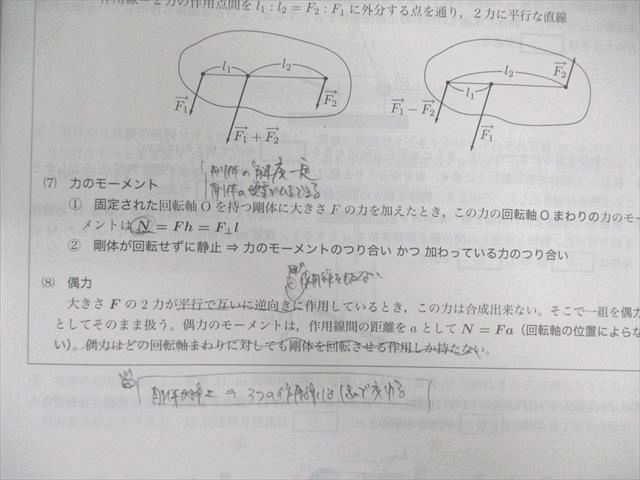 作用線＝2力の作用点間を l₁ : l₂ = F₂ : F₁ に外分する点を通り，2力に平行な直線
l₁ l₂
l₂ F₂
F₁ F₂
F₁ − F₂ l₁
F₁ + F₂
F₁
剛体の 角速度一定
剛体の
(7) 力のモーメント
① 固定された回転軸 O を持つ剛体に大きさ F の力を加えたとき，この力の回転軸 O まわりの力のモー
メントは N = Fh = F⊥l
② 剛体が回転せずに静止 ⇒ 力のモーメントのつり合い かつ 加わっている力のつり合い
(8) 偶力
作用線をもたない
大きさ F の2力が平行で互いに逆向きに作用しているとき，この力は合成出来ない。そこで一組を偶力
としてそのまま扱う。偶力のモーメントは，作用線間の距離を a として N = Fa（回転軸の位置によらな
い）。偶力はどの回転軸まわりに対しても剛体を回転させる作用しか持たない。
剛体が静止 ⇒ 3つの作用線は1点で交わる